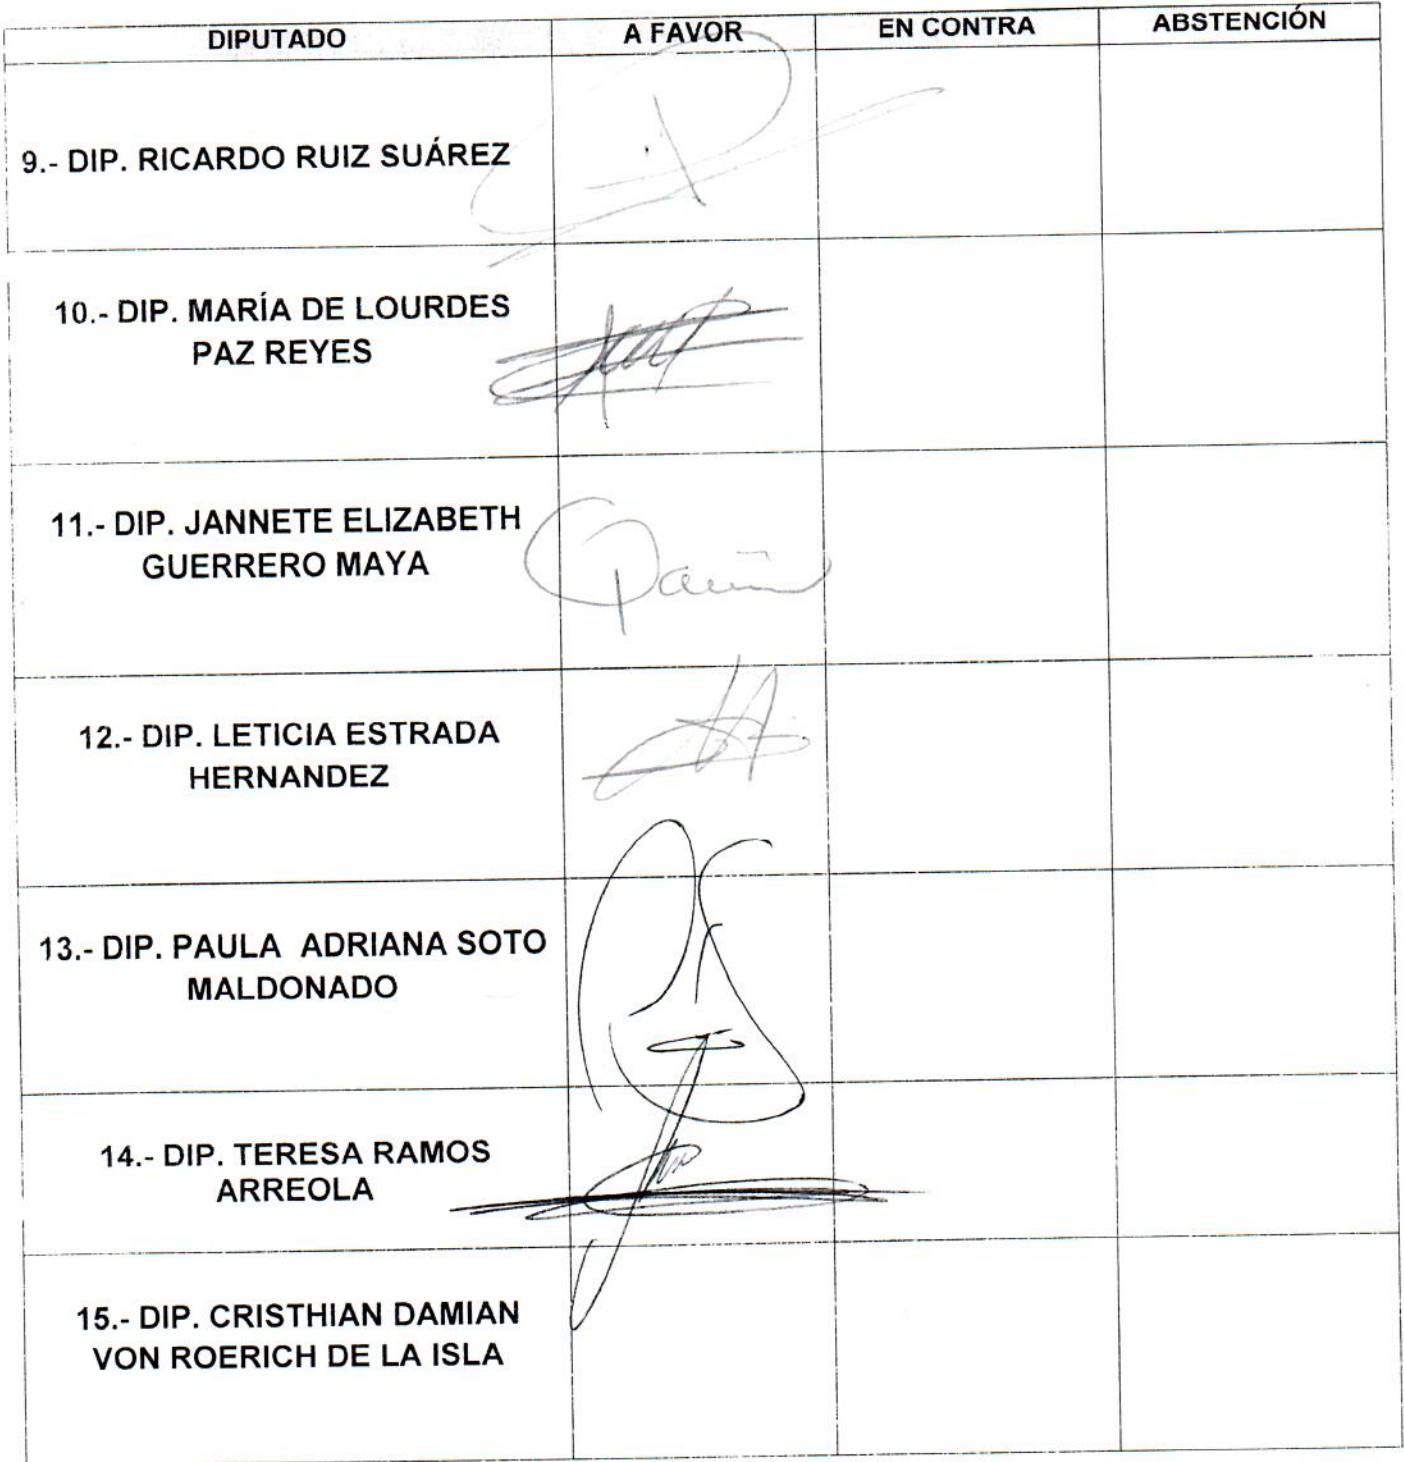 DIPUTADO A FAVOR EN CONTRA ABSTENCIÓN
9.- DIP. RICARDO RUIZ SUÁREZ
10.- DIP. MARÍA DE LOURDES
PAZ REYES
11.- DIP. JANNETE ELIZABETH
GUERRERO MAYA
12.- DIP. LETICIA ESTRADA
HERNANDEZ
13.- DIP. PAULA ADRIANA SOTO
MALDONADO
14.- DIP. TERESA RAMOS
ARREOLA
15.- DIP. CRISTHIAN DAMIAN
VON ROERICH DE LA ISLA